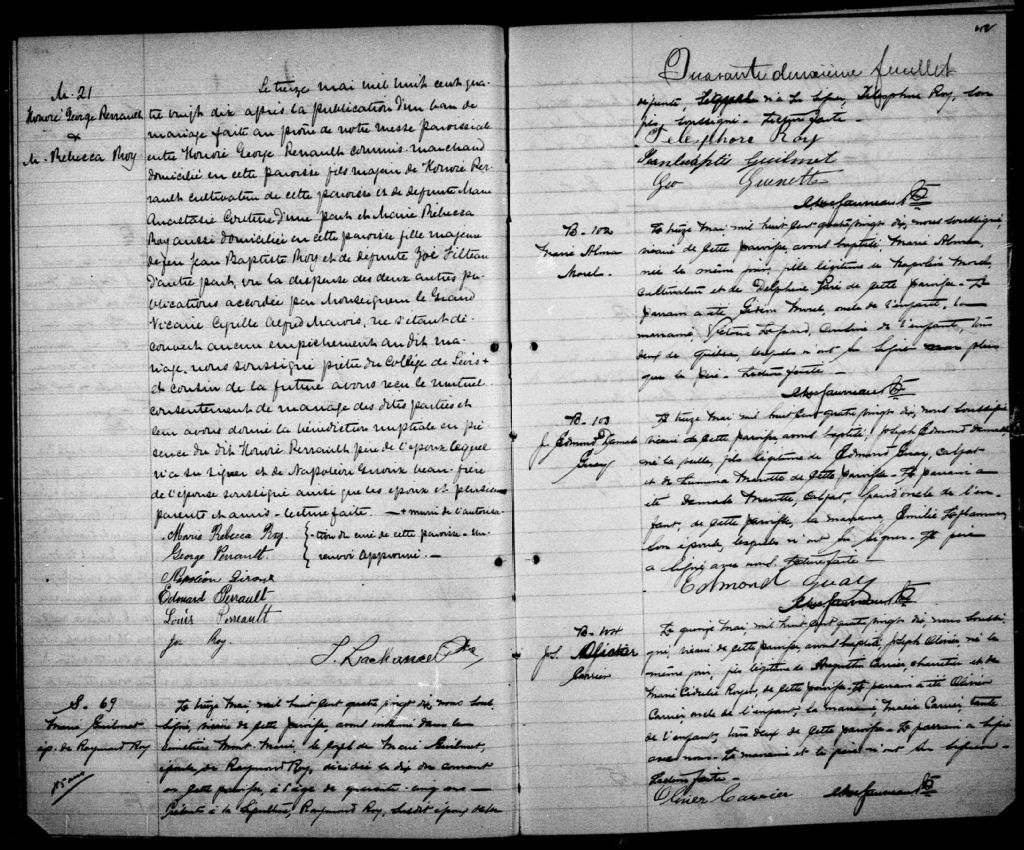 M. 21
Honoré George Perrault
&
M. Rebecca Roy
Le treize mai mil huit cent qua-
tre vingt dix après la publication d'un ban de
mariage faite au prône de notre messe paroissiale
entre Honoré George Perrault commis-marchand
domicilié en cette paroisse fils majeur de Honoré Per-
rault cultivateur de cette paroisse et de défunte Marie
Anastasie Couture d'une part et Marie Rébecca
Roy aussi domiciliée en cette paroisse fille majeure
de feu Jean Baptiste Roy et de défunte Zoé Filteau
d'autre part, vu la dispense des deux autres pu-
blications accordée par Monseigneur le Grand
Vicaire Cyrille Alfred Marois, ne s'étant dé-
couvert aucun empêchement au dit ma-
riage, nous soussigné prêtre du Collège de Lévis +
et cousin de la future avons reçu le mutuel
consentement de mariage des dites parties et
leur avons donné la bénédiction nuptiale en pré-
sence du dit Honoré Perrault père de l'époux lequel
n'a su signer et de Napoléon Giroux beau-frère
de l'épouse soussigné ainsi que les époux et plusieurs
parents et amis - lecture faite. - + muni de l'autorisa-
Marie Rebecca Roy. -tion du curé de cette paroisse - Un
George Perrault. renvoi approuvé. -
Napoléon Giroux
Edouard Perrault
Louis Perreault
Jos Roy.
J. Lachance Ptre
S. 69
Marie Guilmet
ép. de Raymond Roy
45 ans
Le treize Mai, mil huit cent quatre vingt dix, nous sous-
signé, vicaire de cette paroisse, avons inhumé dans le
cimetière Mont-Marie, le corps de Marie Guilmet,
épouse de Raymond Roy, décédée le dix du courant
en cette paroisse, à l'âge de quarante-cinq ans -
Présents à la sépulture, Raymond Roy, susdit époux de la
42
Quarante deuxième feuillet
défunte, n'a su signer, Télesphore Roy, son
soussigné - Lecture faite -
Telesphore Roy
Jean baptis Guilmet
Geo Guenette
B - 102
Marie Alma
Morel -
Le treize Mai, mil huit cent quatre vingt dix, nous soussigné,
vicaire de cette paroisse, avons baptisé Marie Alma,
née le même jour, fille légitime de Napoléon Morel,
cultivateur et de Delphine Paré de cette paroisse - Le
parrain a été Gédéon Morel, oncle de l'enfant, la
marraine, Victoria cousine de l'enfant, tous
deux de Québec, lesquels n'ont su signer non plus
que le père. - Lecture faite -
B - 103
J. Edmond Damase
Guay
Le treize Mai mil huit cent quatre vingt dix, nous soussigné
vicaire de cette paroisse, avons baptisé, Joseph Edmond Damase,
né la veille, fils légitime de Edmond Guay,
et de Marotte de cette paroisse - Le parrain a
été Damase Marotte, grand'oncle de l'en-
fant, de cette paroisse, la marraine Emilie Laflamme,
son épouse, lesquels n'ont su signer - Le père
a signé avec nous. Lecture faite -
Edmond Guay
B - 104
Jos. Olivier
Carrier
Le quinze Mai mil huit cent quatre vingt dix, nous soussi-
gné, vicaire de cette paroisse, avons baptisé, Joseph Olivier, né le
même jour, fils légitime de Augustin Carrier, charretier et de
Marie Cédulie Royer, de cette paroisse. Le parrain a été Olivier
Carrier, oncle de l'enfant, la marraine, Marie Carrier, tante
de l'enfant, tous deux de cette paroisse - Le parrain a signé
avec nous - La marraine et le père n'ont su signer -
Lecture faite -
Olivier Carrier